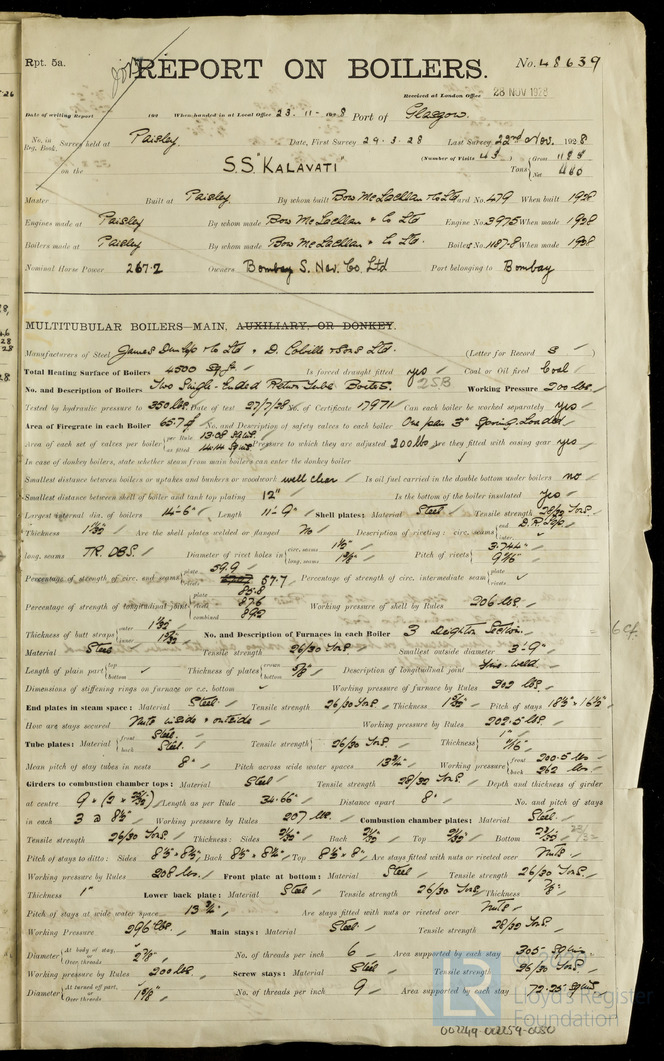 Rpt. 5a.
REPORT ON BOILERS.
No. 48639
Received at London Office 28 NOV 1928
Date of writing Report 192 When handed in at Local Office 23.11.1928 Port of Glasgow.
No. in Reg. Book. Survey held at Paisley Date, First Survey 29.3.28 Last Survey 22nd Nov. 1928
(Number of Visits 43) Gross 1188
on the S.S. "KALAVATI" Tons Net 440
Master Built at Paisley By whom built Bow McLachlan & Co Ltd Yard No. 479 When built 1928
Engines made at Paisley By whom made Bow McLachlan & Co Ltd Engine No. 3975 When made 1928
Boilers made at Paisley By whom made Bow McLachlan & Co Ltd. Boiler No. 1187-8 When made 1928
Nominal Horse Power 267.2 Owners Bombay S. Nav. Co. Ltd Port belonging to Bombay
MULTITUBULAR BOILERS—MAIN, AUXILIARY, OR DONKEY.
Manufacturers of Steel James Dunlop & Co Ltd & D. Colville & Sons Ltd. (Letter for Record S)
Total Heating Surface of Boilers 4500 Sq ft Is forced draught fitted yes Coal or Oil fired Coal
No. and Description of Boilers Two Single-Ended Return Tube Boilers. 2SB Working Pressure 200 lbs.
Tested by hydraulic pressure to 350 lbs. Date of test 27/7/28 No. of Certificate 17971 Can each boiler be worked separately yes
Area of Firegrate in each Boiler 65.7 No. and Description of safety valves to each boiler One pair 3" Spring Loaded
Area of each set of valves per boiler per Rule 13.08 sq ins. as fitted 14.14 sq ins. Pressure to which they are adjusted 200 lbs Are they fitted with easing gear yes
In case of donkey boilers, state whether steam from main boilers can enter the donkey boiler ✓
Smallest distance between boilers or uptakes and bunkers or woodwork well clear Is oil fuel carried in the double bottom under boilers no
Smallest distance between shell of boiler and tank top plating 12" Is the bottom of the boiler insulated yes
Largest internal dia. of boilers 14'-6" Length 11'-9" Shell plates: Material Steel Tensile strength 28/32 Tons.
Thickness 1 1/32" Are the shell plates welded or flanged No Description of riveting: circ. seams end D.R. Lap inter. ✓
long. seams TR. DBS. Diameter of rivet holes in circ. seams long. seams Pitch of rivets 3.744"
Percentage of strength of circ. end seams plate 59.9 rivets 57.7 Percentage of strength of circ. intermediate seam plate rivets ✓
Percentage of strength of longitudinal joint plate 85.8 rivets 87.6 combined 89.2 Working pressure of shell by Rules 206 lbs.
Thickness of butt straps outer inner No. and Description of Furnaces in each Boiler 3 Deighton Section
Material Steel Tensile strength 26/30 Tons Smallest outside diameter 3'-9"
Length of plain part top bottom ✓ Thickness of plates crown bottom 5/8" Description of longitudinal joint Fire weld.
Dimensions of stiffening rings on furnace or c.c. bottom ✓ Working pressure of furnace by Rules 202 lbs.
End plates in steam space: Material Steel Tensile strength 26/30 Tons. Thickness Pitch of stays 18½" x 16½"
How are stays secured Nuts inside & outside Working pressure by Rules 202.5 lbs.
Tube plates: Material front Steel. back Steel. Tensile strength 26/30 Tons. Thickness 1" 11/16"
Mean pitch of stay tubes in nests 8" Pitch across wide water spaces 13¾" Working pressure front 200.5 lbs back 262 lbs
Girders to combustion chamber tops: Material Steel Tensile strength 28/32 Tons. Depth and thickness of girder
at centre Length as per Rule 34.66" Distance apart 8" No. and pitch of stays
in each 3 @ 8½" Working pressure by Rules 207 lbs. Combustion chamber plates: Material Steel
Tensile strength 26/30 Tons. Thickness: Sides Back Top Bottom
Pitch of stays to ditto: Sides 8½" x 8½" Back 8½" x 8½" Top 8½" x 8" Are stays fitted with nuts or riveted over Nuts
Working pressure by Rules 208 lbs. Front plate at bottom: Material Steel Tensile strength 26/30 Tons.
Thickness 1" Lower back plate: Material Steel Tensile strength 26/30 Tons Thickness 7/8"
Pitch of stays at wide water space 13¾" Are stays fitted with nuts or riveted over Nuts
Working Pressure 296 lbs. Main stays: Material Steel. Tensile strength 28/32 Tons.
Diameter At body of stay, or Over threads 2 7/8" No. of threads per inch 6 Area supported by each stay 305 sq ins
Working pressure by Rules 200 lbs. Screw stays: Material Steel Tensile strength 26/30 Tons.
Diameter At turned off part, or Over threads 1 5/8" No. of threads per inch 9 Area supported by each stay 72.25 sq ins.
© 2020
LR
Lloyd's Register
Foundation
002249-002259-0080